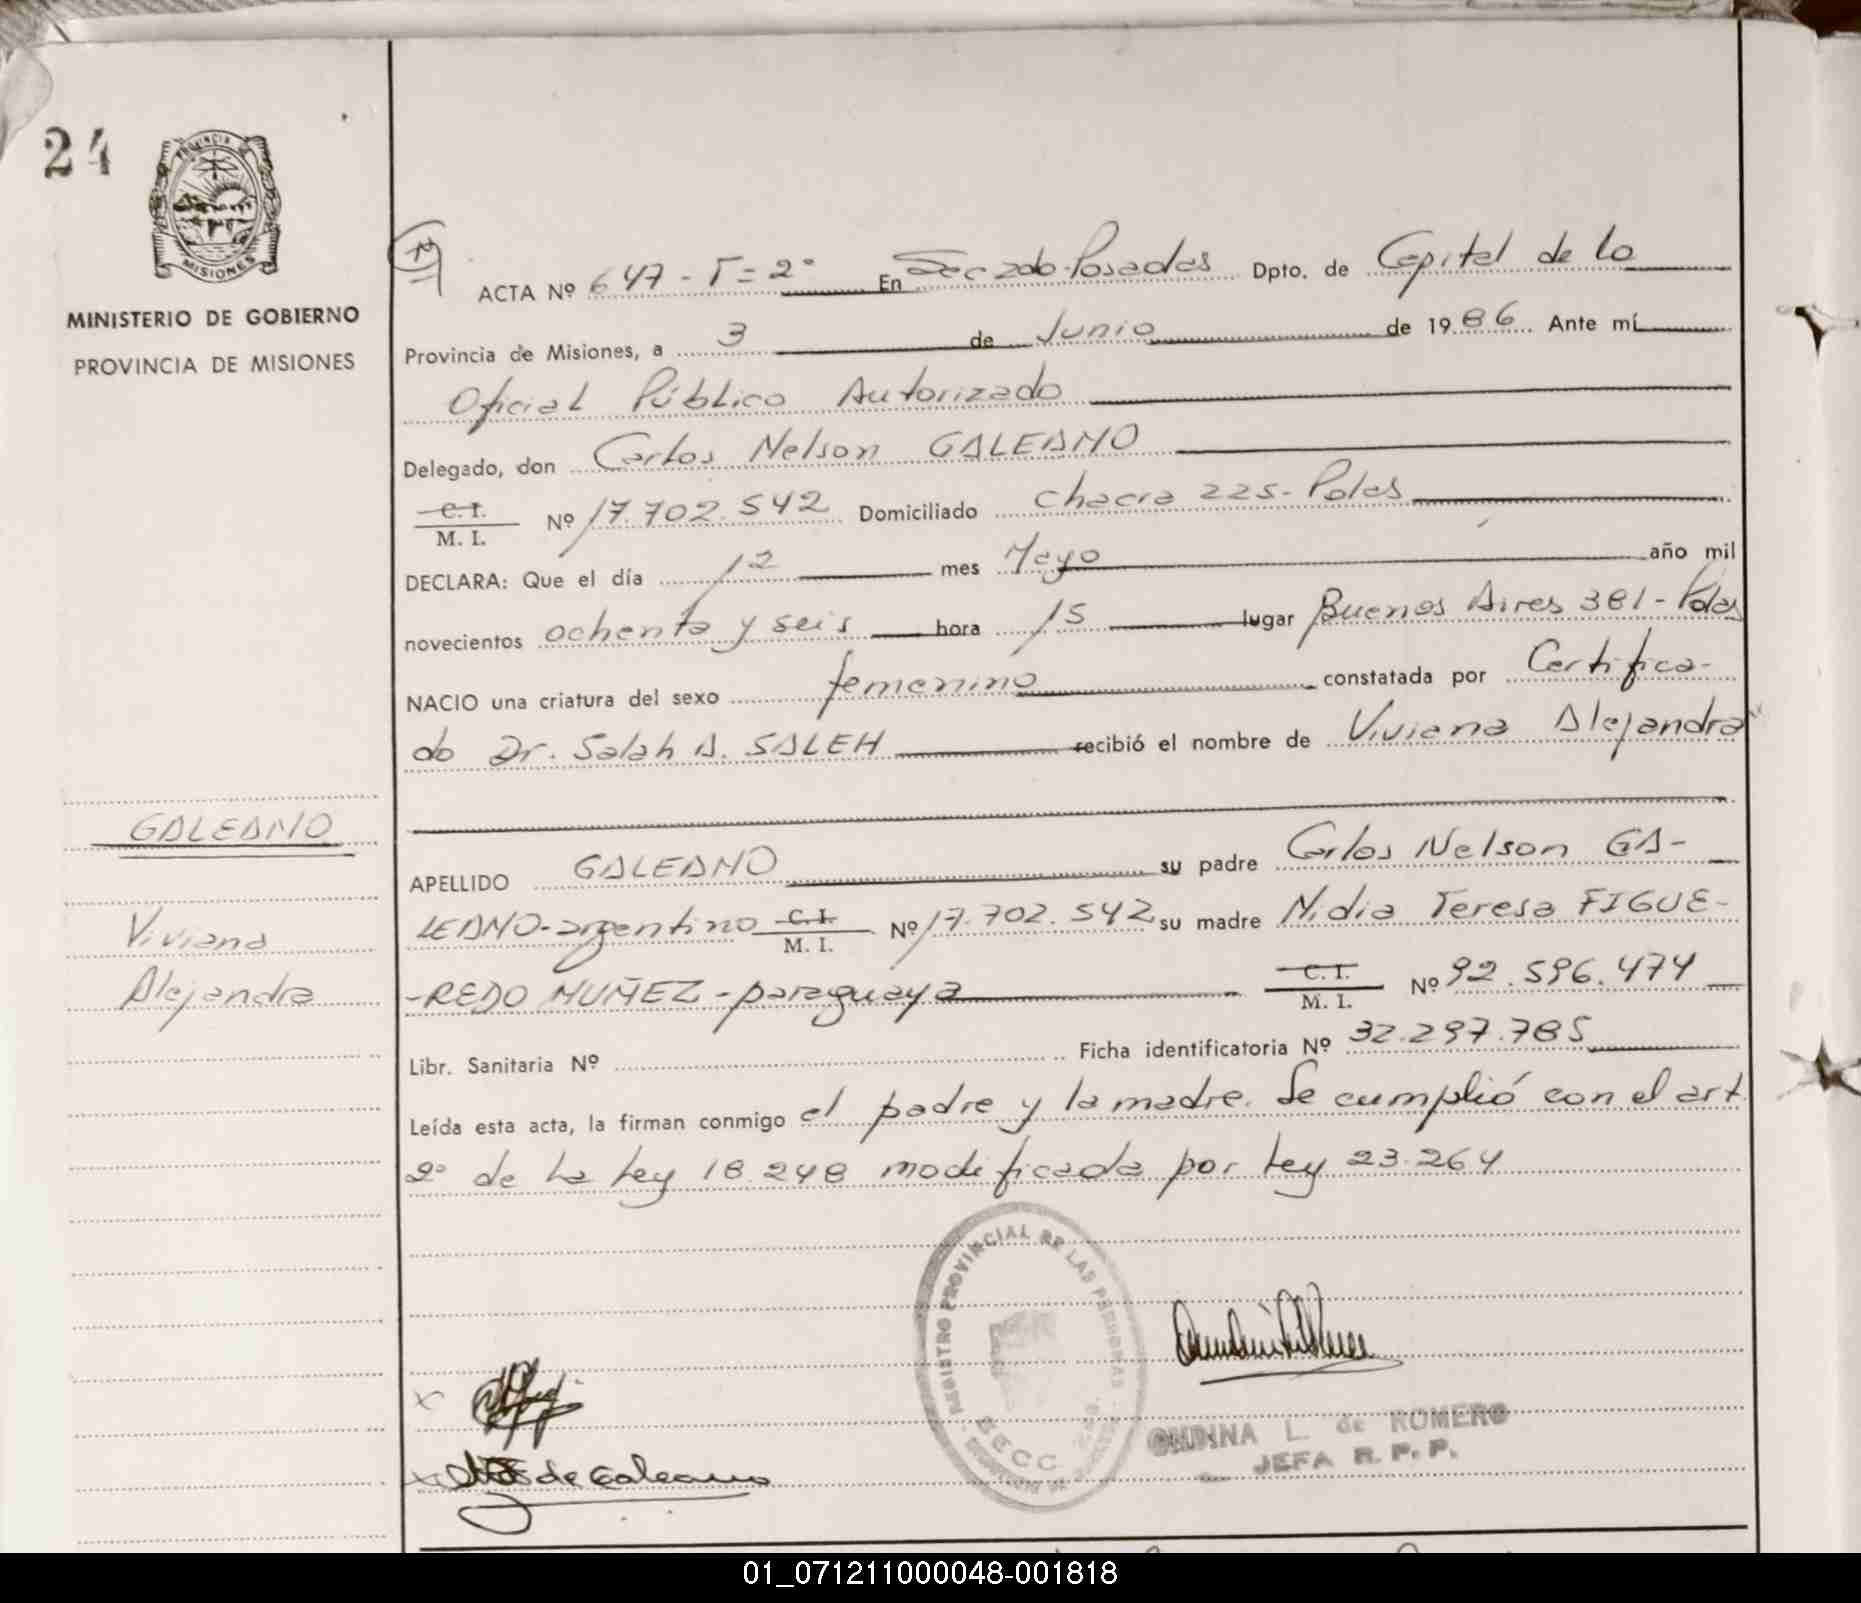 24
PROVINCIA DE
MISIONES
MINISTERIO DE GOBIERNO
PROVINCIA DE MISIONES
ACTA Nº 647 - T = 2º En Secc 2da Posadas Dpto. de Capital de la
Provincia de Misiones, a 3 de Junio de 1986 Ante mí
Oficial Público Autorizado
Delegado, don Carlos Nelson GALEANO
C. I.
M. I. Nº 17.702.542 Domiciliado chacra 225 - Pdas
DECLARA: Que el día 12 mes Mayo año mil
novecientos ochenta y seis hora 15 lugar Buenos Aires 381 - Pdas
NACIO una criatura del sexo femenino constatada por Certifica-
do Dr. Salah A. SALEH recibió el nombre de Viviana Alejandra
GALEANO
Viviana
Alejandra
APELLIDO GALEANO su padre Carlos Nelson GA-
LEANO - argentino C. I. M. I. Nº 17.702.542 su madre Nidia Teresa FIGUE-
-REDO NUÑEZ - paraguaya C. I. M. I. Nº 92.596.474
Libr. Sanitaria Nº Ficha identificatoria Nº 32.297.785
Leída esta acta, la firman conmigo el padre y la madre. Se cumplió con el art
2º de la Ley 18.248 modificada por Ley 23.264
REGISTRO PROVINCIAL DE LAS PERSONAS
SECC
x
x de Galeano
ONDINA L. de ROMERO
JEFA R. P. P.
01_071211000048-001818